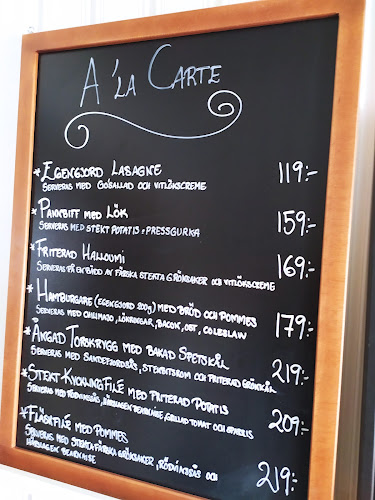 A 'LA CARTE
* EGENGJORD LASAGNE 119:-
SERVERAS MED GOSALLAD OCH VITLÖKSCREME
* PANNBIFF MED LÖK 159:-
SERVERAS MED STEKT POTATIS & PRESSGURKA
* FRITERAD HALLOUMI 169:-
SERVERAS PÅ EN BÄDD AV FÄRSKA STEKTA GRÖNSAKER OCH VITLÖKSCREME
* HAMBURGARE (EGENGJORD 200g) MED BRÖD OCH POMMES 179:-
SERVERAS MED CHILIMAJO, LÖKRINGAR, BACON, OST, COLESLAW
* ÅNGAD TORSKRYGG MED BAKAD SPETSKÅL 219:-
SERVERAS MED SANDEFJORDSÅS, STENBITSROM OCH FRITERAD GRÖNKÅL
* STEKT KYCKLINGFILÉ MED FRITERAD POTATIS 209:-
SERVERAS MED RÖDVINSSÅS, BEARNAISE, GRILLAD TOMAT OCH SPARRIS
* FLÄSKFILÉ MED POMMES 219:-
SERVERAS MED STEKTA FÄRSKA GRÖNSAKER, RÖDVINSSÅS OCH
BEARNAISE